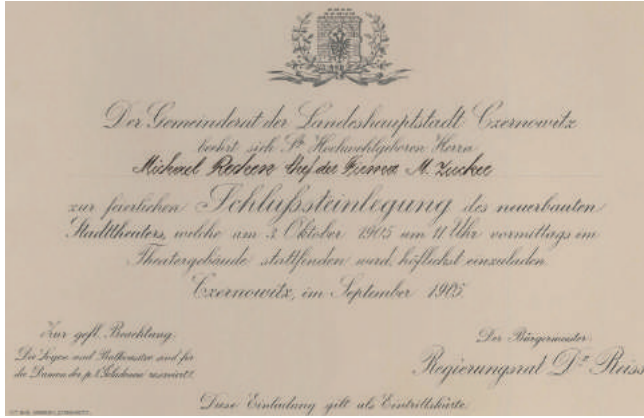 Der Gemeinderat der Landeshauptstadt Czernowitz
beehrt sich Sr Hochwohlgeboren Herrn
Michael Rechen Chef der Firma M. Zucker
zur feierlichen Schlußsteinlegung des neuerbauten
Stadttheaters, welche am 3. Oktober 1905 um 11 Uhr vormittags im
Theatergebäude stattfinden wird, höflichst einzuladen.
Czernowitz, im September 1905.
Zur gefl. Beachtung:
Die Logen und Balkonsitze sind für
die Damen der p. t. Geladenen reserviert.
Der Bürgermeister:
Regierungsrat Dr Reiss
Diese Einladung gilt als Eintrittskarte.